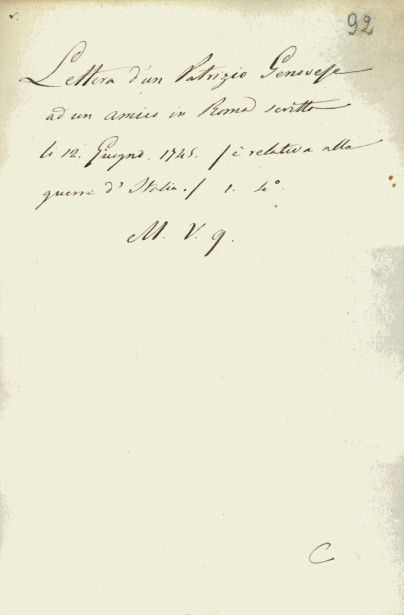 92
Lettera d'un Patrizio Genovese
ad un amico in Roma scritta
li 12. Giugno. 1745. / è relativa alla
guerra d'Italia. / 1. 4°.
M. V. 9.
C